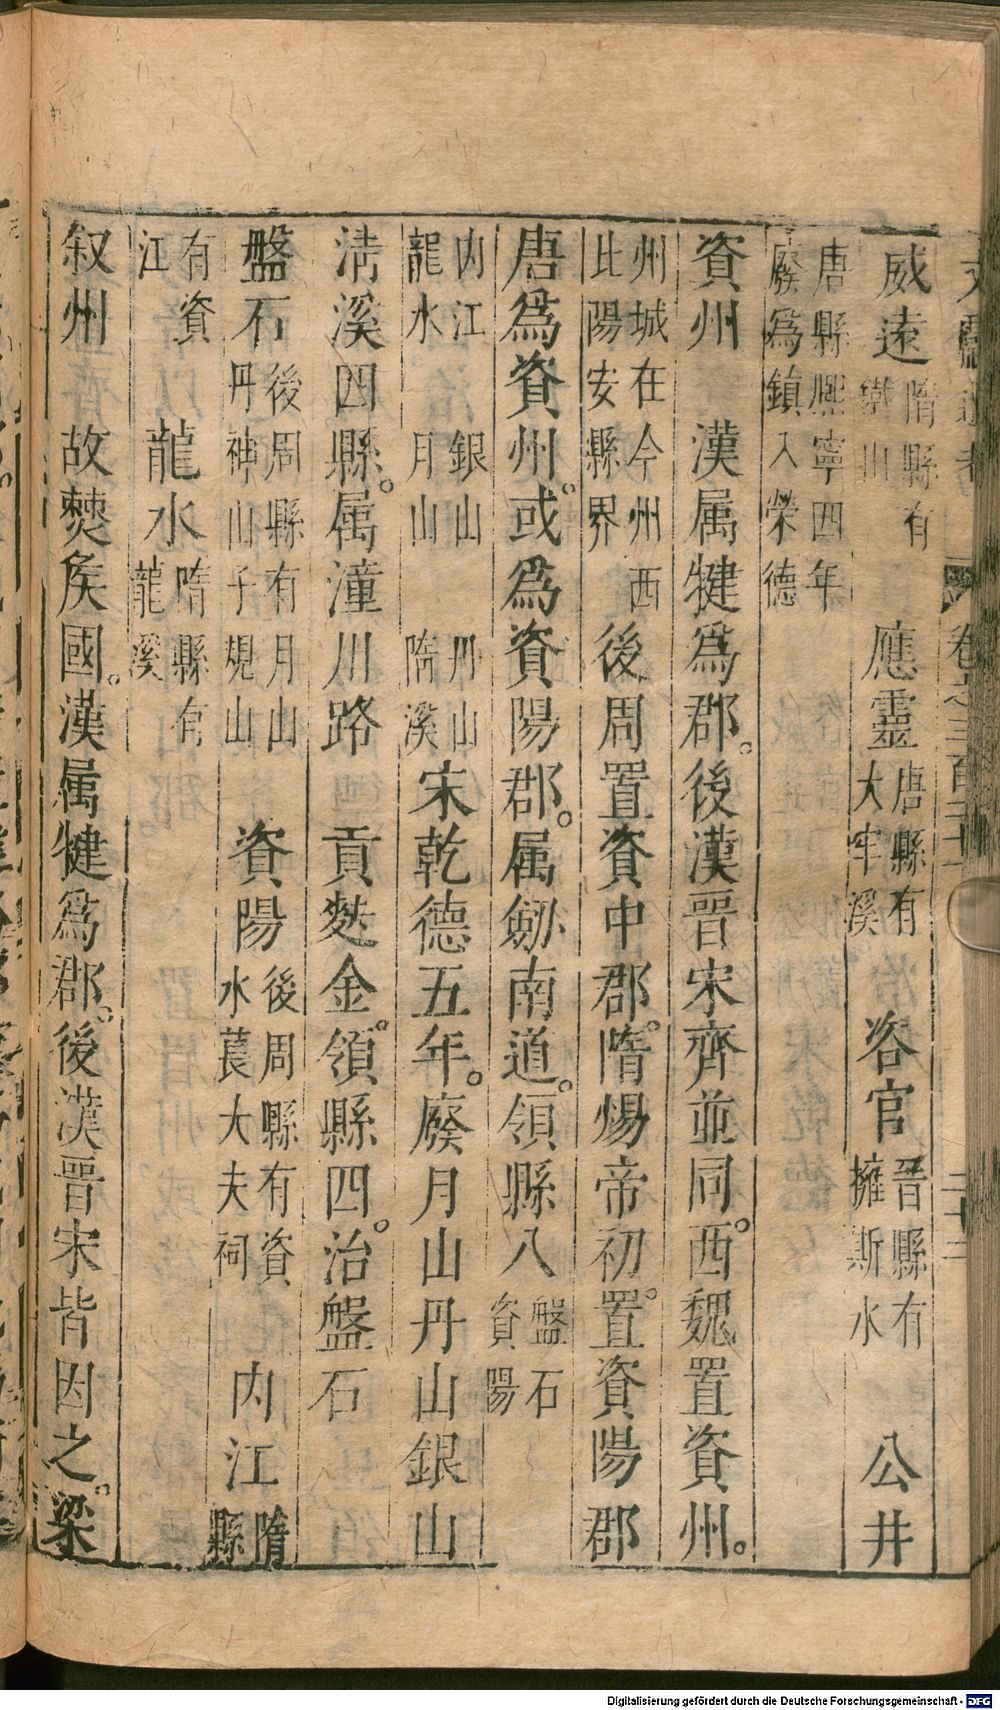 威遠 隋縣有鐵山 應靈 唐縣有大牢溪 咨官 晉縣有擁斯水 公井
唐縣熙寧四年廢爲鎮入榮德
資州 漢属犍爲郡。後漢晉宋齊並同。西魏置資州。
州城在今州西比陽安縣界 後周置資中郡。隋煬帝初。置資陽郡
唐爲資州。或爲資陽郡。属劒南道。領縣八 盤石資陽
内江龍水 銀山月山 丹山隋溪 宋乾德五年。廢月山丹山銀山
淸溪四縣。属潼川路 貢麩金。領縣四。治盤石
盤石 後周縣有月山丹神山子規山 資陽 後周縣有資水萇大夫祠 内江 隋縣
有資江 龍水 隋縣有龍溪
叙州 故僰侯國。漢属犍爲郡。後漢晉宋皆因之。梁
Digitalisierung gefördert durch die Deutsche Forschungsgemeinschaft - DFG